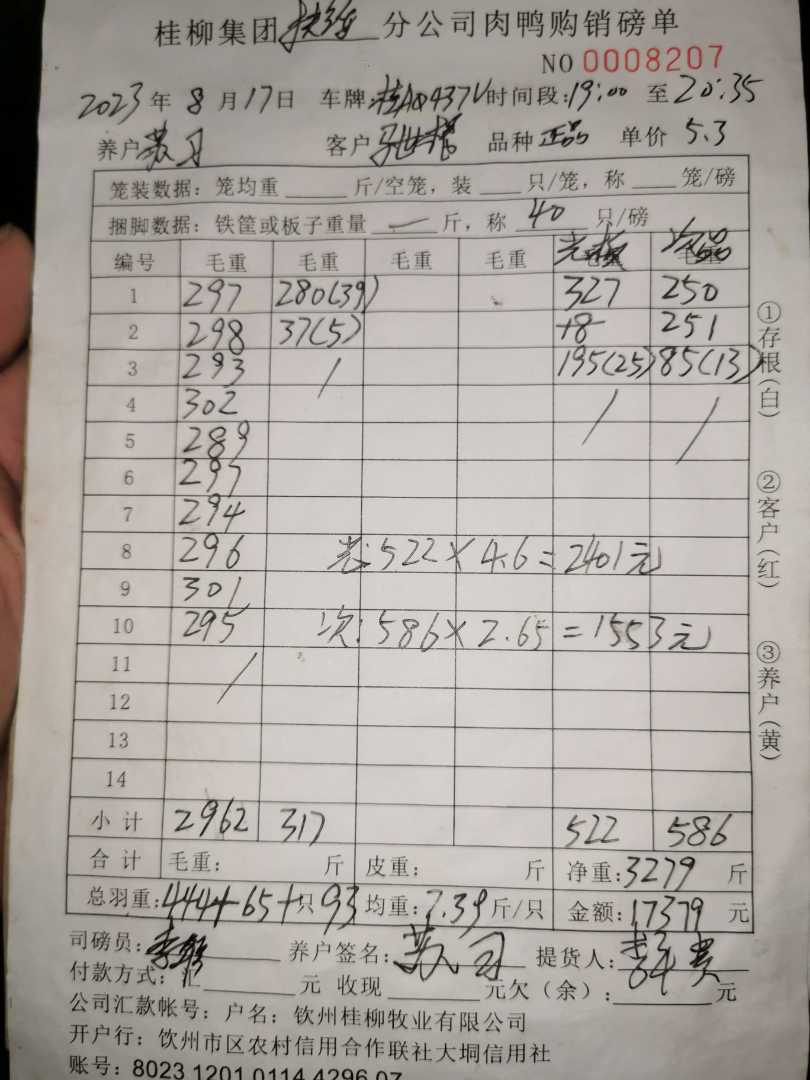 桂柳集团扶绥分公司肉鸭购销磅单
NO 0008207
2023年8月17日 车牌:桂AQ437V时间段:19:00至20:35
养户苏习 客户 品种正品 单价5.3
笼装数据:笼均重____斤/空笼,装___只/笼,称___笼/磅
捆脚数据:铁筐或板子重量 — 斤,称 40 只/磅
编号 毛重 毛重 毛重 毛重 次品
1 297 280(39) 327 250
2 298 37(5) +8 251
3 293 / 195(25) 85(13)
4 302 / /
5 289
6 297
7 294
8 296 光:522×4.6=2401元
9 301
10 295 次:586×2.65=1553元
11 /
12
13
14
小计 2962 317 522 586
合计 毛重: 斤 皮重: 斤 净重:3279斤
总羽重:444+65+只93 均重:7.39斤/只 金额:17379元
司磅员: 养户签名:苏习 提货人:
付款方式:汇______元 收现______元欠(余):______元
公司汇款帐号:户名:钦州桂柳牧业有限公司
开户行:钦州市区农村信用合作联社大垌信用社
账号:8023 1201 0114 4296 07
①存根(白)
②客户(红)
③养户(黄)